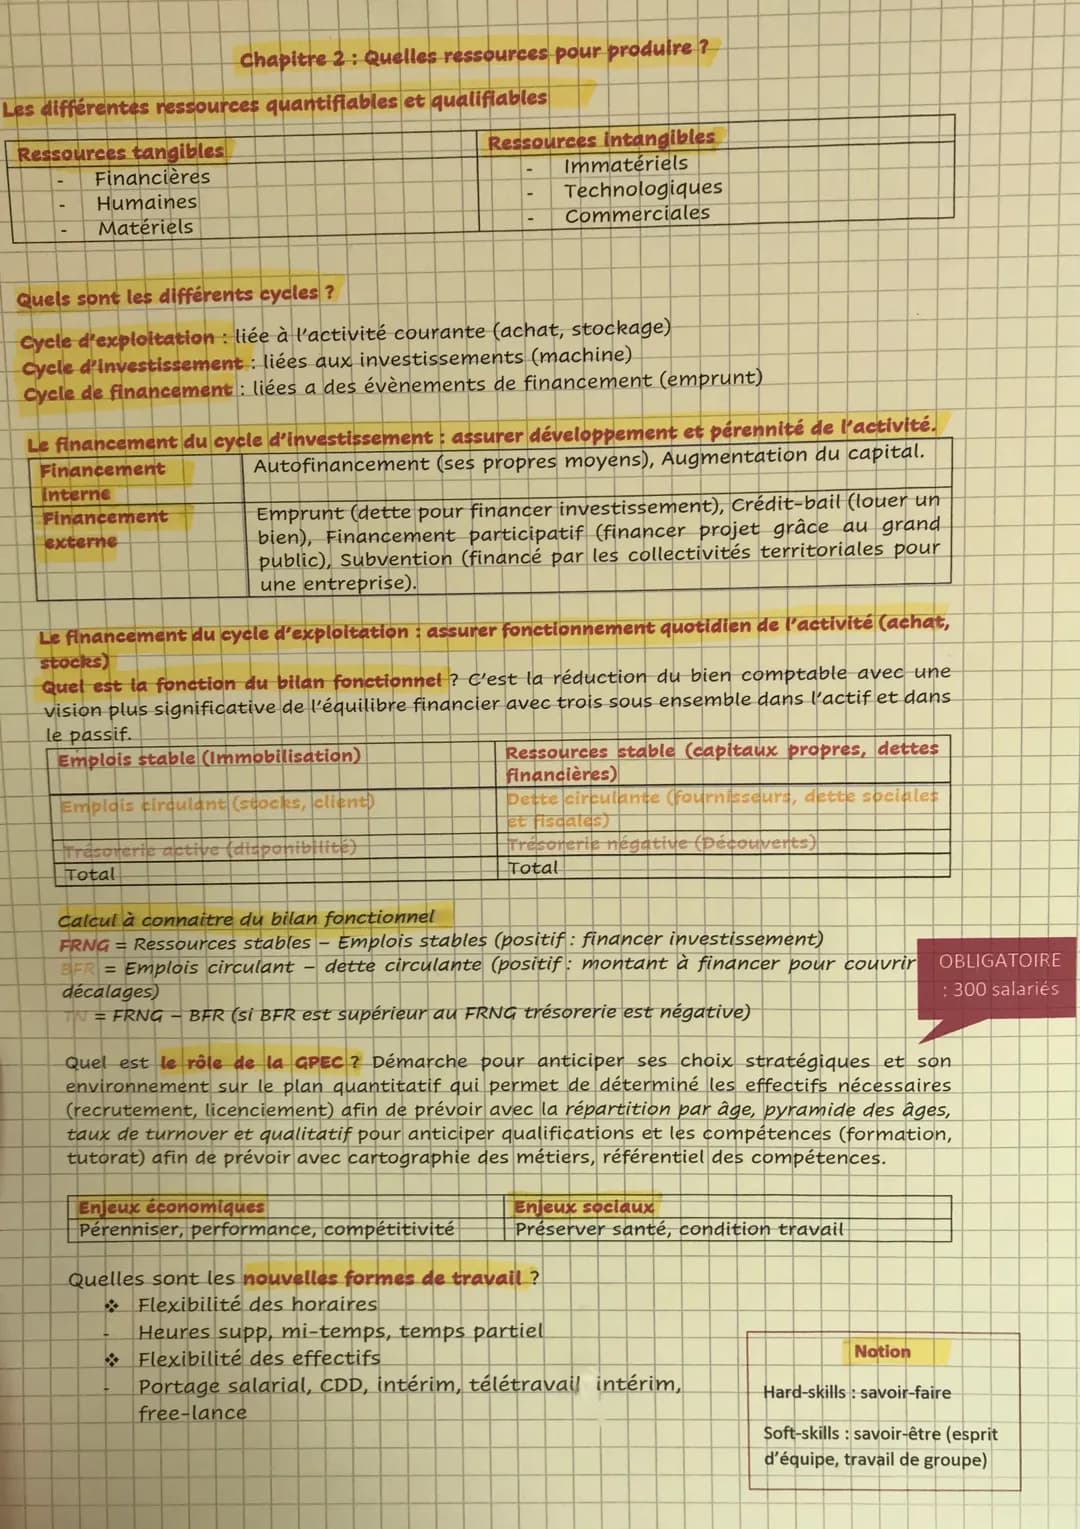 Chapitre 2 : Quelles ressources pour produire ?
Les différentes ressources quantifiables et qualifiables
Ressources tangibles
- Financières
- Humaines
- Matériels
Ressources intangibles
- Immatériels
- Technologiques
- Commerciales
Quels sont les différents cycles ?
Cycle d'exploitation : liée à l'activité courante (achat, stockage)
Cycle d'investissement : liées aux investissements (machine)
Cycle de financement : liées a des évènements de financement (emprunt)
Le financement du cycle d'investissement : assurer développement et pérennité de l'activité.
Financement
Interne
Autofinancement (ses propres moyens), Augmentation du capital.
Financement
externe
Emprunt (dette pour financer investissement), Crédit-bail (louer un
bien), Financement participatif (financer projet grâce au grand
public), Subvention (financé par les collectivités territoriales pour
une entreprise).
Le financement du cycle d'exploitation : assurer fonctionnement quotidien de l'activité (achat,
stocks)
Quel est la fonction du bilan fonctionnel ? C'est la réduction du bien comptable avec une
vision plus significative de l'équilibre financier avec trois sous ensemble dans l'actif et dans
le passif.
Emplois stable (Immobilisation)
Ressources stable (capitaux propres, dettes
financières)
Emplois circulant (stocks, client)
Dette circulante (fournisseurs, dette sociales
et fiscales)
Trésorerie active (disponibilité)
Trésorerie négative (Découverts)
Total
Total
Calcul à connaitre du bilan fonctionnel
FRNG = Ressources stables – Emplois stables (positif : financer investissement)
BFR = Emplois circulant – dette circulante (positif : montant à financer pour couvrir
décalages)
TN = FRNG – BFR (si BFR est supérieur au FRNG trésorerie est négative)
OBLIGATOIRE
: 300 salariés
Quel est le rôle de la GPEC ? Démarche pour anticiper ses choix stratégiques et son
environnement sur le plan quantitatif qui permet de déterminé les effectifs nécessaires
(recrutement, licenciement) afin de prévoir avec la répartition par âge, pyramide des âges,
taux de turnover et qualitatif pour anticiper qualifications et les compétences (formation,
tutorat) afin de prévoir avec cartographie des métiers, référentiel des compétences.
Enjeux économiques
Enjeux sociaux
Pérenniser, performance, compétitivité
Préserver santé, condition travail
Quelles sont les nouvelles formes de travail ?
❖ Flexibilité des horaires
- Heures supp, mi-temps, temps partiel
❖ Flexibilité des effectifs
- Portage salarial, CDD, intérim, télétravail intérim,
free-lance
Notion
Hard-skills : savoir-faire
Soft-skills : savoir-être (esprit
d'équipe, travail de groupe)